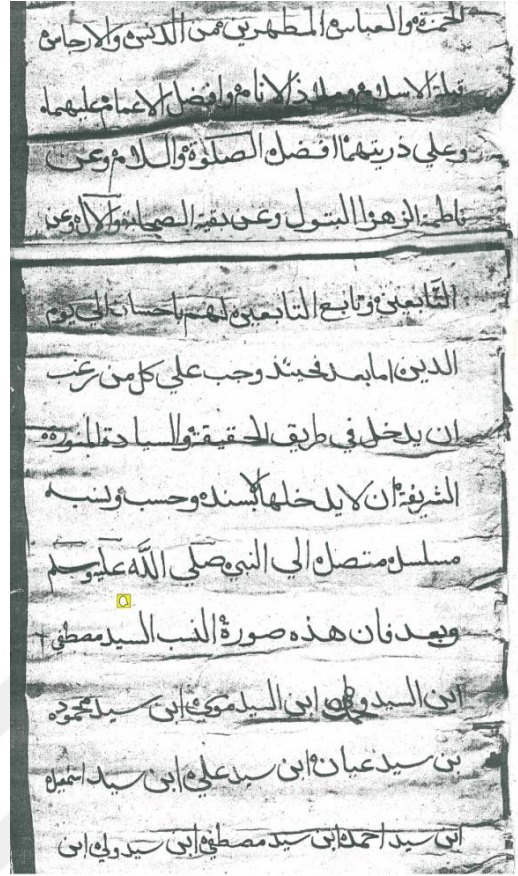 الحمزة والعباس المطهرين من الدنس والارجاس
قبلة الاسلام وملاذ الانام وافضل الاعمام عليهما
وعلي ذريتهما افضل الصلوة والسلام وعن
فاطمة الزهرا البتول وعن بقية الصحابة والآل وعن
التابعين وتابع التابعين لهم باحسان الي يوم
الدين اما بعد فحينئذ وجب علي كل من رغب
ان يدخل في طريق الحقيقة والسيادة المنورة
الشريفة ان لا يدخلها الا بسند وحسب ونسب
مسلسل متصل الي النبي صلي الله عليه وسلم
وبعد فان هذه صورة النسب السيد مصطفي
ابن السيد ابن السيد موسي ابن سيد محمود
بن سيد ابن سيد علي ابن سيد اسمعيل
ابن سيد احمد ابن سيد مصطفي ابن سيد ولي ابن